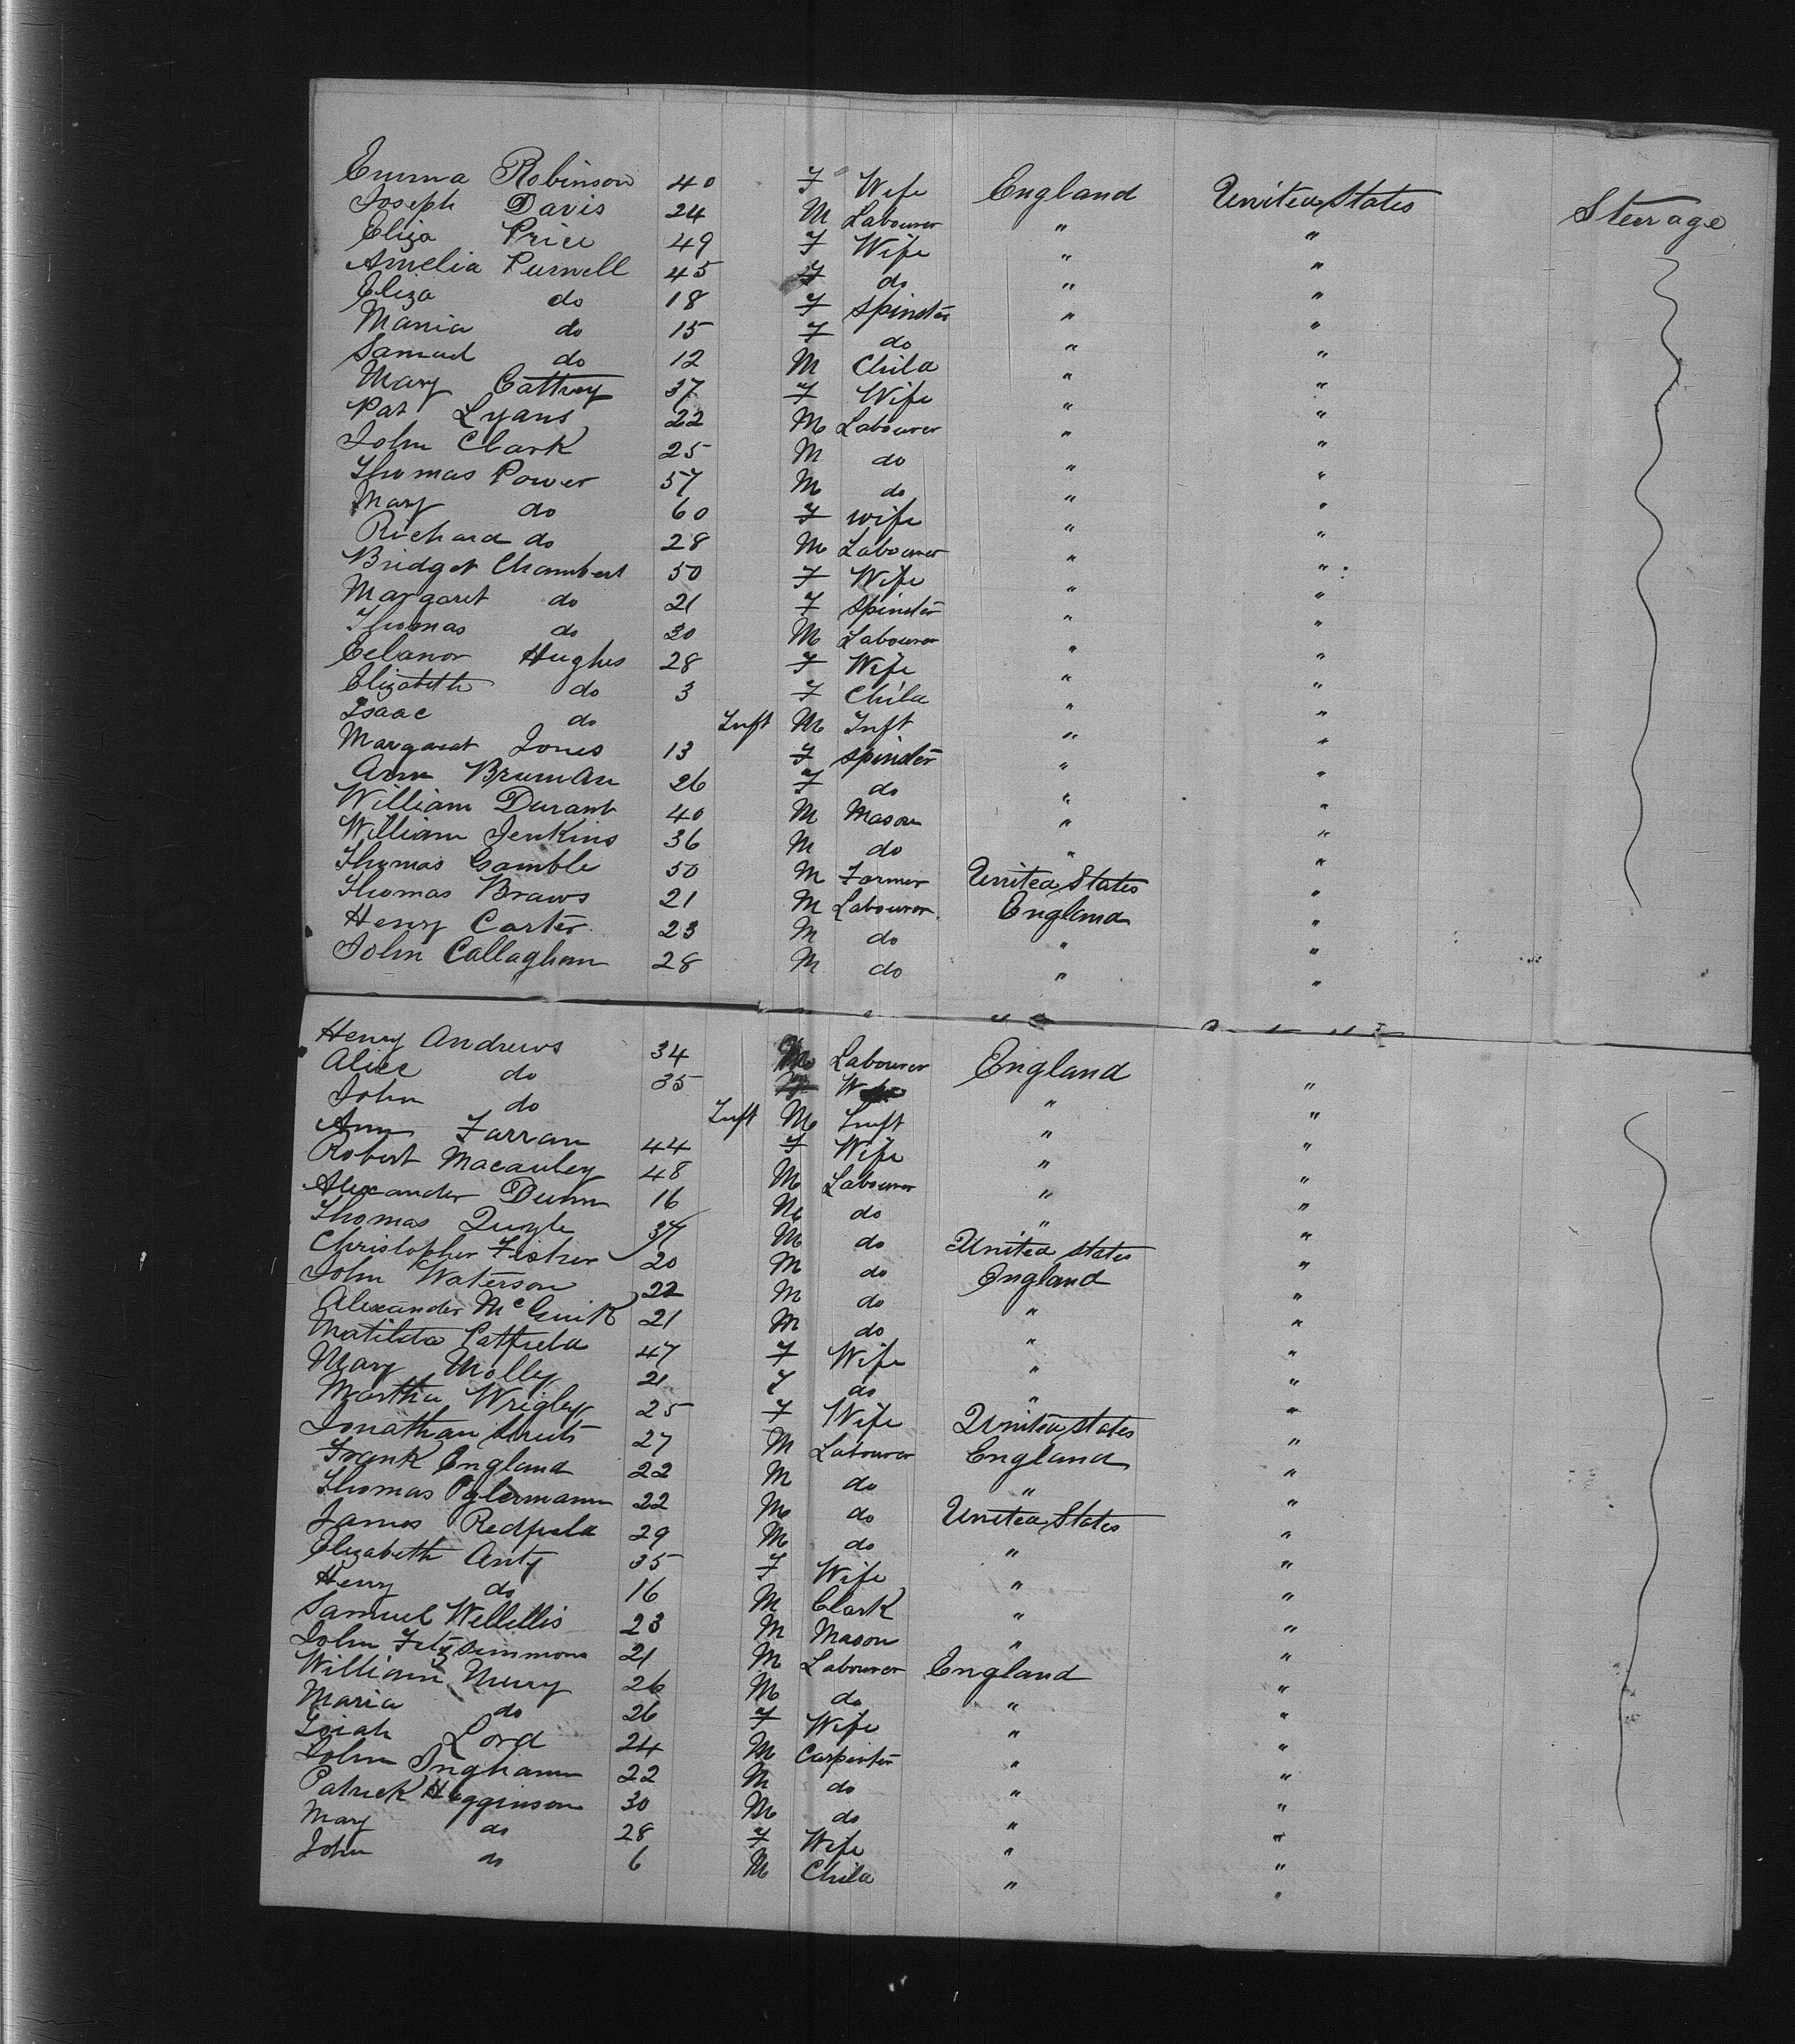 Emma Robinson 40 F Wife England United States Steerage
Joseph Davis 24 M Labourer " "
Eliza Price 49 F Wife " "
Amelia Purnell 45 F do " "
Eliza do 18 F Spinster " "
Maria do 15 F do " "
Samuel do 12 M Child " "
Mary 37 F Wife " "
Pat Lyans 22 M Labourer " "
John Clark 25 M do " "
Thomas Power 57 M do " "
Mary do 60 F wife " "
Richard do 28 M Labourer " "
Bridget Chambert 50 F Wife " "
Margaret do 21 F Spinster " "
Thomas do 20 M Labourer " "
Eelanor Hughes 28 F Wife " "
Elizabeth do 3 F Child " "
Isaac do Inft M Inft " "
Margaret Jones 13 F Spinster " "
Ann 26 F do " "
William Durant 40 M Mason " "
William Jenkins 36 M do " "
Thomas Gamble 50 M Farmer United States "
Thomas Braws 21 M Labourer England "
Henry Carter 23 M do " "
John Callaghan 28 M do " "
Henry Andrews 34 M Labourer England "
Alice do 35 F " "
John do Inft M Inft " "
Ann Farran 44 F Wife " "
Robert Macauley 48 M Labourer " "
Alexander Dunn 16 M do " "
Thomas 37 M do United States "
Christopher Fisher 20 M do England "
John Waterson 22 M do " "
Alexander 21 M do " "
Matilda Patfield 47 F Wife " "
Mary Molly 21 F do " "
Martha Wrigley 25 F Wife United States "
Jonathan 27 M Labourer England "
Frank England 22 M do " "
Thomas 22 M do United States "
James Redfield 29 M do " "
Elizabeth Anty 35 F Wife " "
Henry do 16 M Clark " "
Samuel 23 M Mason " "
John Fitzsimmons 21 M Labourer England "
William 26 M do " "
Maria do 26 F Wife " "
Isiah Lord 24 M Carpenter " "
John Ingham 22 M do " "
Patrick Higginson 30 M do " "
Mary do 28 F Wife " "
John do 6 M Child " "